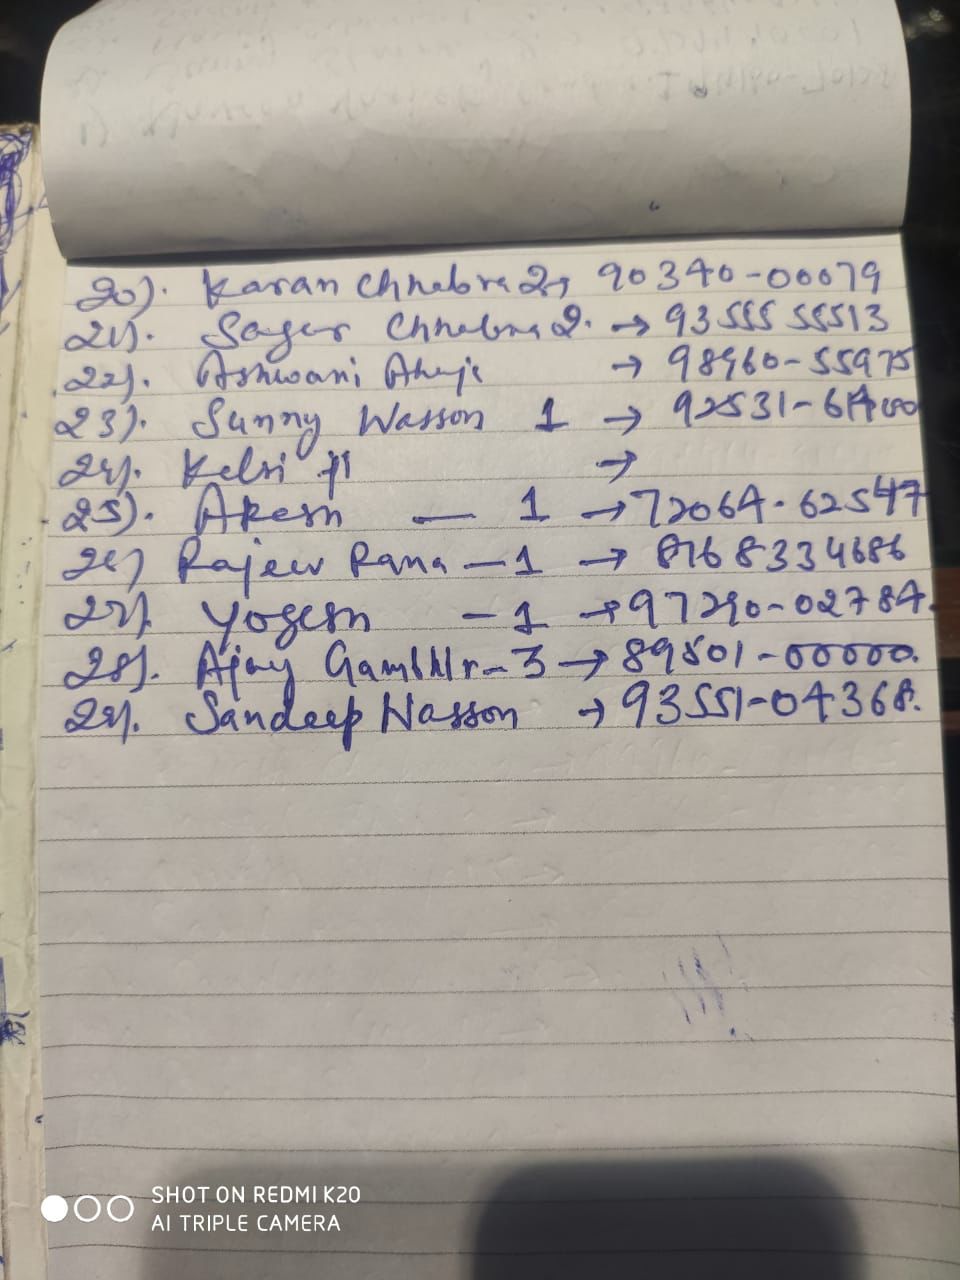 20). Karan Chhabra 2 → 90340-00079
21). Sager Chhabra 2. → 93555 55513
22). Ashwani Ahuja → 98960-55975
23). Sunny Wasson 1 → 92531-61400
24). ji →
25). Akesh — 1 → 72064-62547
26) Rajeev Rana — 1 → 8168334686
27). Yogesh — 1 → 97290-02784.
28). Ajay Gambhir - 3 → 89501-00000.
29). Sandeep Wasson → 93551-04368.
SHOT ON REDMI K20
AI TRIPLE CAMERA